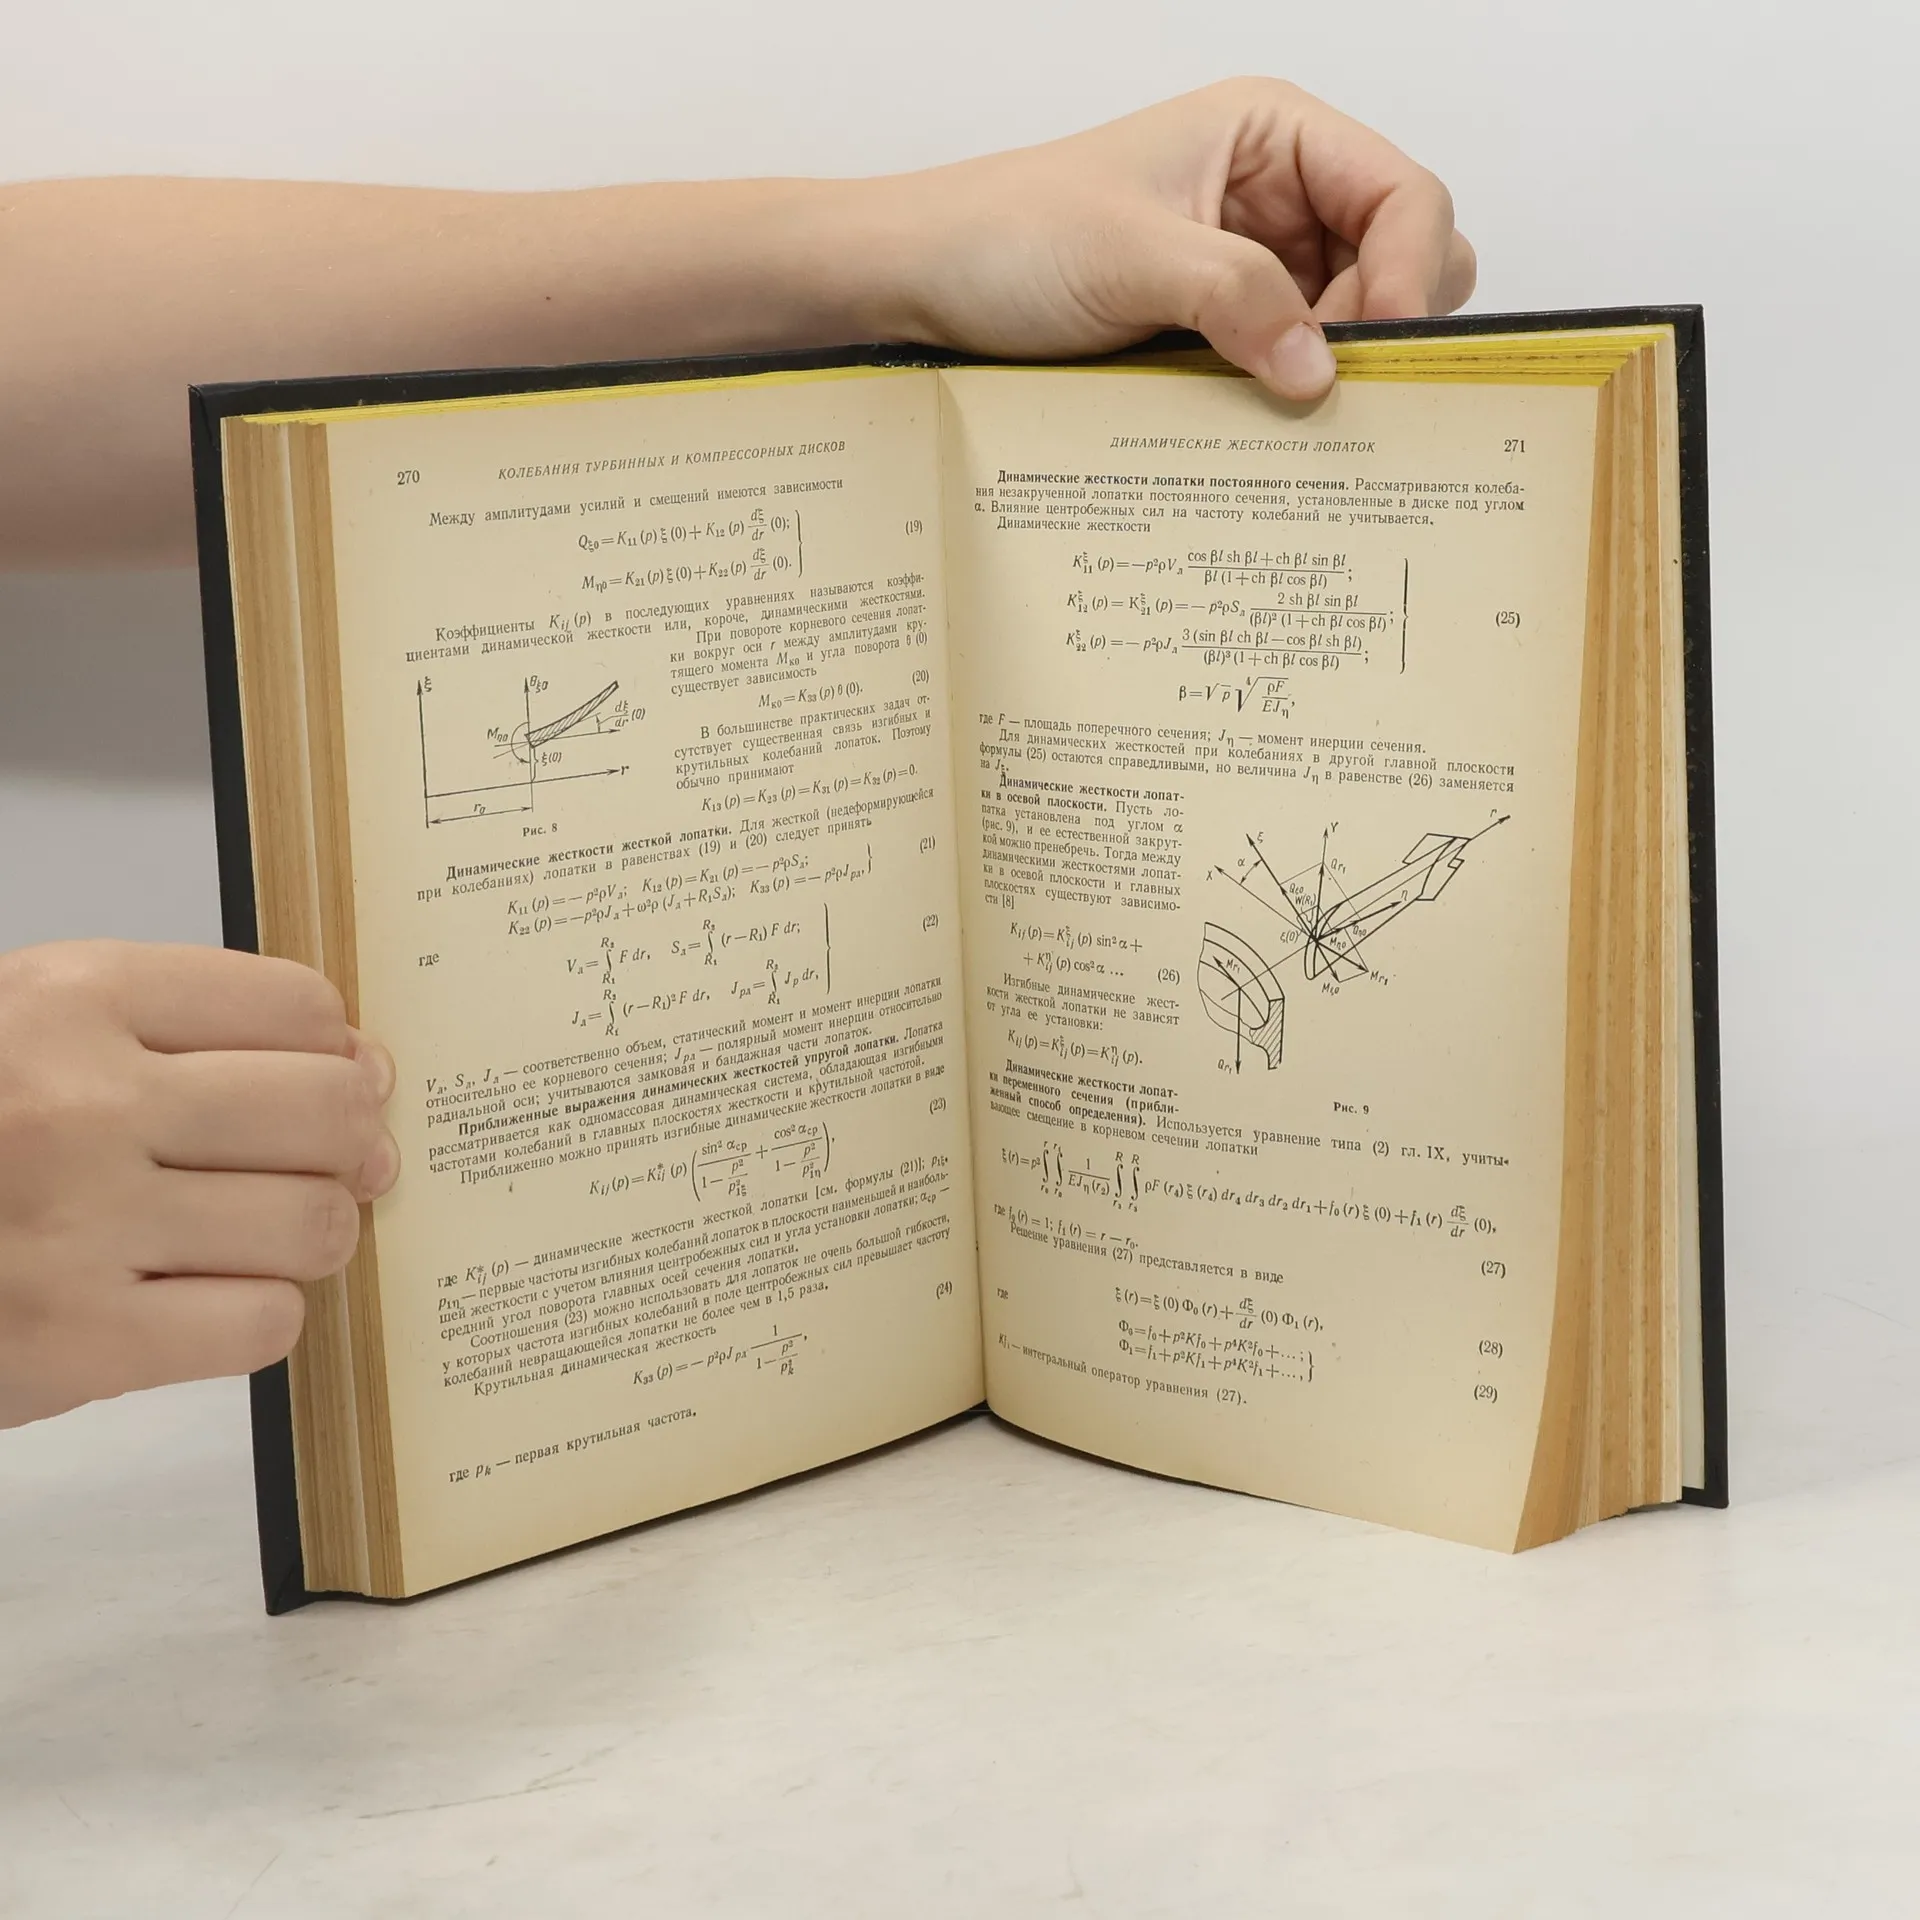 270 КОЛЕБАНИЯ ТУРБИННЫХ И КОМПРЕССОРНЫХ ДИСКОВ
Между амплитудами усилий и смещений имеются зависимости
Qξ0 = K11 (p) ξ (0) + K12 (p) dξ/dr (0);
Mη0 = K21 (p) ξ (0) + K22 (p) dξ/dr (0).
(19)
Коэффициенты Kij (p) в последующих уравнениях называются коэффи-
циентами динамической жесткости или, короче, динамическими жесткостями.
При повороте корневого сечения лопат-
ки вокруг оси r между амплитудами кру-
тящего момента Mк0 и угла поворота θ (0)
существует зависимость
Mк0 = K33 (p) θ (0). (20)
В большинстве практических задач от-
сутствует существенная связь изгибных и
крутильных колебаний лопаток. Поэтому
обычно принимают
K13 (p) = K23 (p) = K31 (p) = K32 (p) = 0.
ξ
θξ0
Mη0
dξ/dr (0)
ξ(0)
r
r0
Рис. 8
Динамические жесткости жесткой лопатки. Для жесткой (недеформирующейся
при колебаниях) лопатки в равенствах (19) и (20) следует принять
K11 (p) = — p²ρVл; K12 (p) = K21 (p) = — p²ρSл;
K22 (p) = —p²ρJл + ω²ρ (Jл + R1Sл); K33 (p) = — p²ρJрл,
(21)
где
Vл = ∫R1R2 F dr, Sл = ∫R1R2 (r — R1) F dr;
Jл = ∫R1R2 (r — R1)² F dr, Jрл = ∫R1R2 Jp dr,
(22)
Vл, Sл, Jл — соответственно объем, статический момент и момент инерции лопатки
относительно ее корневого сечения; Jрл — полярный момент инерции относительно
радиальной оси; учитываются замковая и бандажная части лопаток.
Приближенные выражения динамических жесткостей упругой лопатки. Лопатка
рассматривается как одномассовая динамическая система, обладающая изгибными
частотами колебаний в главных плоскостях жесткости и крутильной частотой.
Приближенно можно принять изгибные динамические жесткости лопатки в виде
Kij (p) = K*ij (p) (sin² αср / (1 — p²/p²1ξ) + cos² αср / (1 — p²/p²1η)),
(23)
где K*ij (p) — динамические жесткости жесткой лопатки [см. формулы (21)]; p1ξ,
p1η — первые частоты изгибных колебаний лопаток в плоскости наименьшей и наиболь-
шей жесткости с учетом влияния центробежных сил и угла установки лопатки; αср —
средний угол поворота главных осей сечения лопатки.
Соотношения (23) можно использовать для лопаток не очень большой гибкости,
у которых частота изгибных колебаний в поле центробежных сил превышает частоту
колебаний невращающейся лопатки не более чем в 1,5 раза.
Крутильная динамическая жесткость
K33 (p) = — p²ρJрл 1 / (1 — p²/p²k),
(24)
где pk — первая крутильная частота.
ДИНАМИЧЕСКИЕ ЖЕСТКОСТИ ЛОПАТОК 271
Динамические жесткости лопатки постоянного сечения. Рассматриваются колеба-
ния незакрученной лопатки постоянного сечения, установленные в диске под углом
α. Влияние центробежных сил на частоту колебаний не учитывается.
Динамические жесткости
Kξ11 (p) = —p²ρVл (cos βl sh βl + ch βl sin βl) / (βl (1 + ch βl cos βl));
Kξ12 (p) = Kξ21 (p) = — p²ρSл 2 sh βl sin βl / ((βl)² (1 + ch βl cos βl));
Kξ22 (p) = — p²ρJл 3 (sin βl ch βl — cos βl sh βl) / ((βl)³ (1 + ch βl cos βl));
(25)
β = √p ⁴√(ρF / EJη),
где F — площадь поперечного сечения; Jη — момент инерции сечения.
Для динамических жесткостей при колебаниях в другой главной плоскости
формулы (25) остаются справедливыми, но величина Jη в равенстве (26) заменяется
на Jξ.
Динамические жесткости лопат-
ки в осевой плоскости. Пусть ло-
патка установлена под углом α
(рис. 9), и ее естественной закрут-
кой можно пренебречь. Тогда между
динамическими жесткостями лопат-
ки в осевой плоскости и главных
плоскостях существуют зависимо-
сти [8]
Kij (p) = Kξij (p) sin² α +
+ Kηij (p) cos² α ... (26)
Изгибные динамические жест-
кости жесткой лопатки не зависят
от угла ее установки:
Kij (p) = Kξij (p) = Kηij (p).
Динамические жесткости лопат-
ки переменного сечения (прибли-
женный способ определения). Используется уравнение типа (2) гл. IX, учиты-
вающее смещение в корневом сечении лопатки
r
Y
ξ
α
X
Qr1
Qξ0
W(R1)
η
ξ(0)
Mη0
Qη0
Mr1
Mξ0
Qr1
Рис. 9
ξ (r) = p² ∫r0r ∫r0r1 1/EJη (r2) ∫r2R ∫r3R ρF (r4) ξ (r4) dr4 dr3 dr2 dr1 + f0 (r) ξ (0) + f1 (r) dξ/dr (0),
(27)
где f0 (r) = 1; f1 (r) = r — r0.
Решение уравнения (27) представляется в виде
ξ (r) = ξ (0) Φ0 (r) + dξ/dr (0) Φ1 (r),
(28)
где
Φ0 = f0 + p²Kf0 + p⁴K²f0 + ... ;
Φ1 = f1 + p²Kf1 + p⁴K²f1 + ... ,
(29)
Kfi — интегральный оператор уравнения (27).